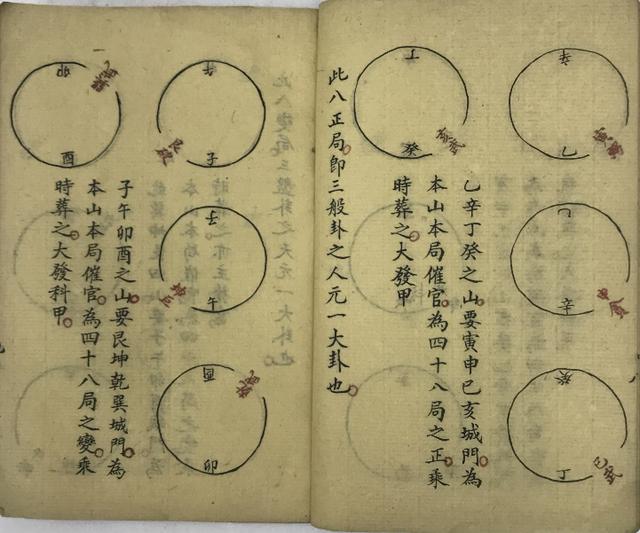 辛
乙
乙
辛
癸
丁
丁
癸
乙辛丁癸之山要寅申巳亥城門為
本山本局催官為四十八局之正乘
時葬之大發甲
此八正局即三般卦之人元一大卦也
午
子
子
午
酉
卯
卯
酉
子午卯酉之山要艮坤乾巽城門為
本山本局催官為四十八局之變乘
時葬之大發科甲